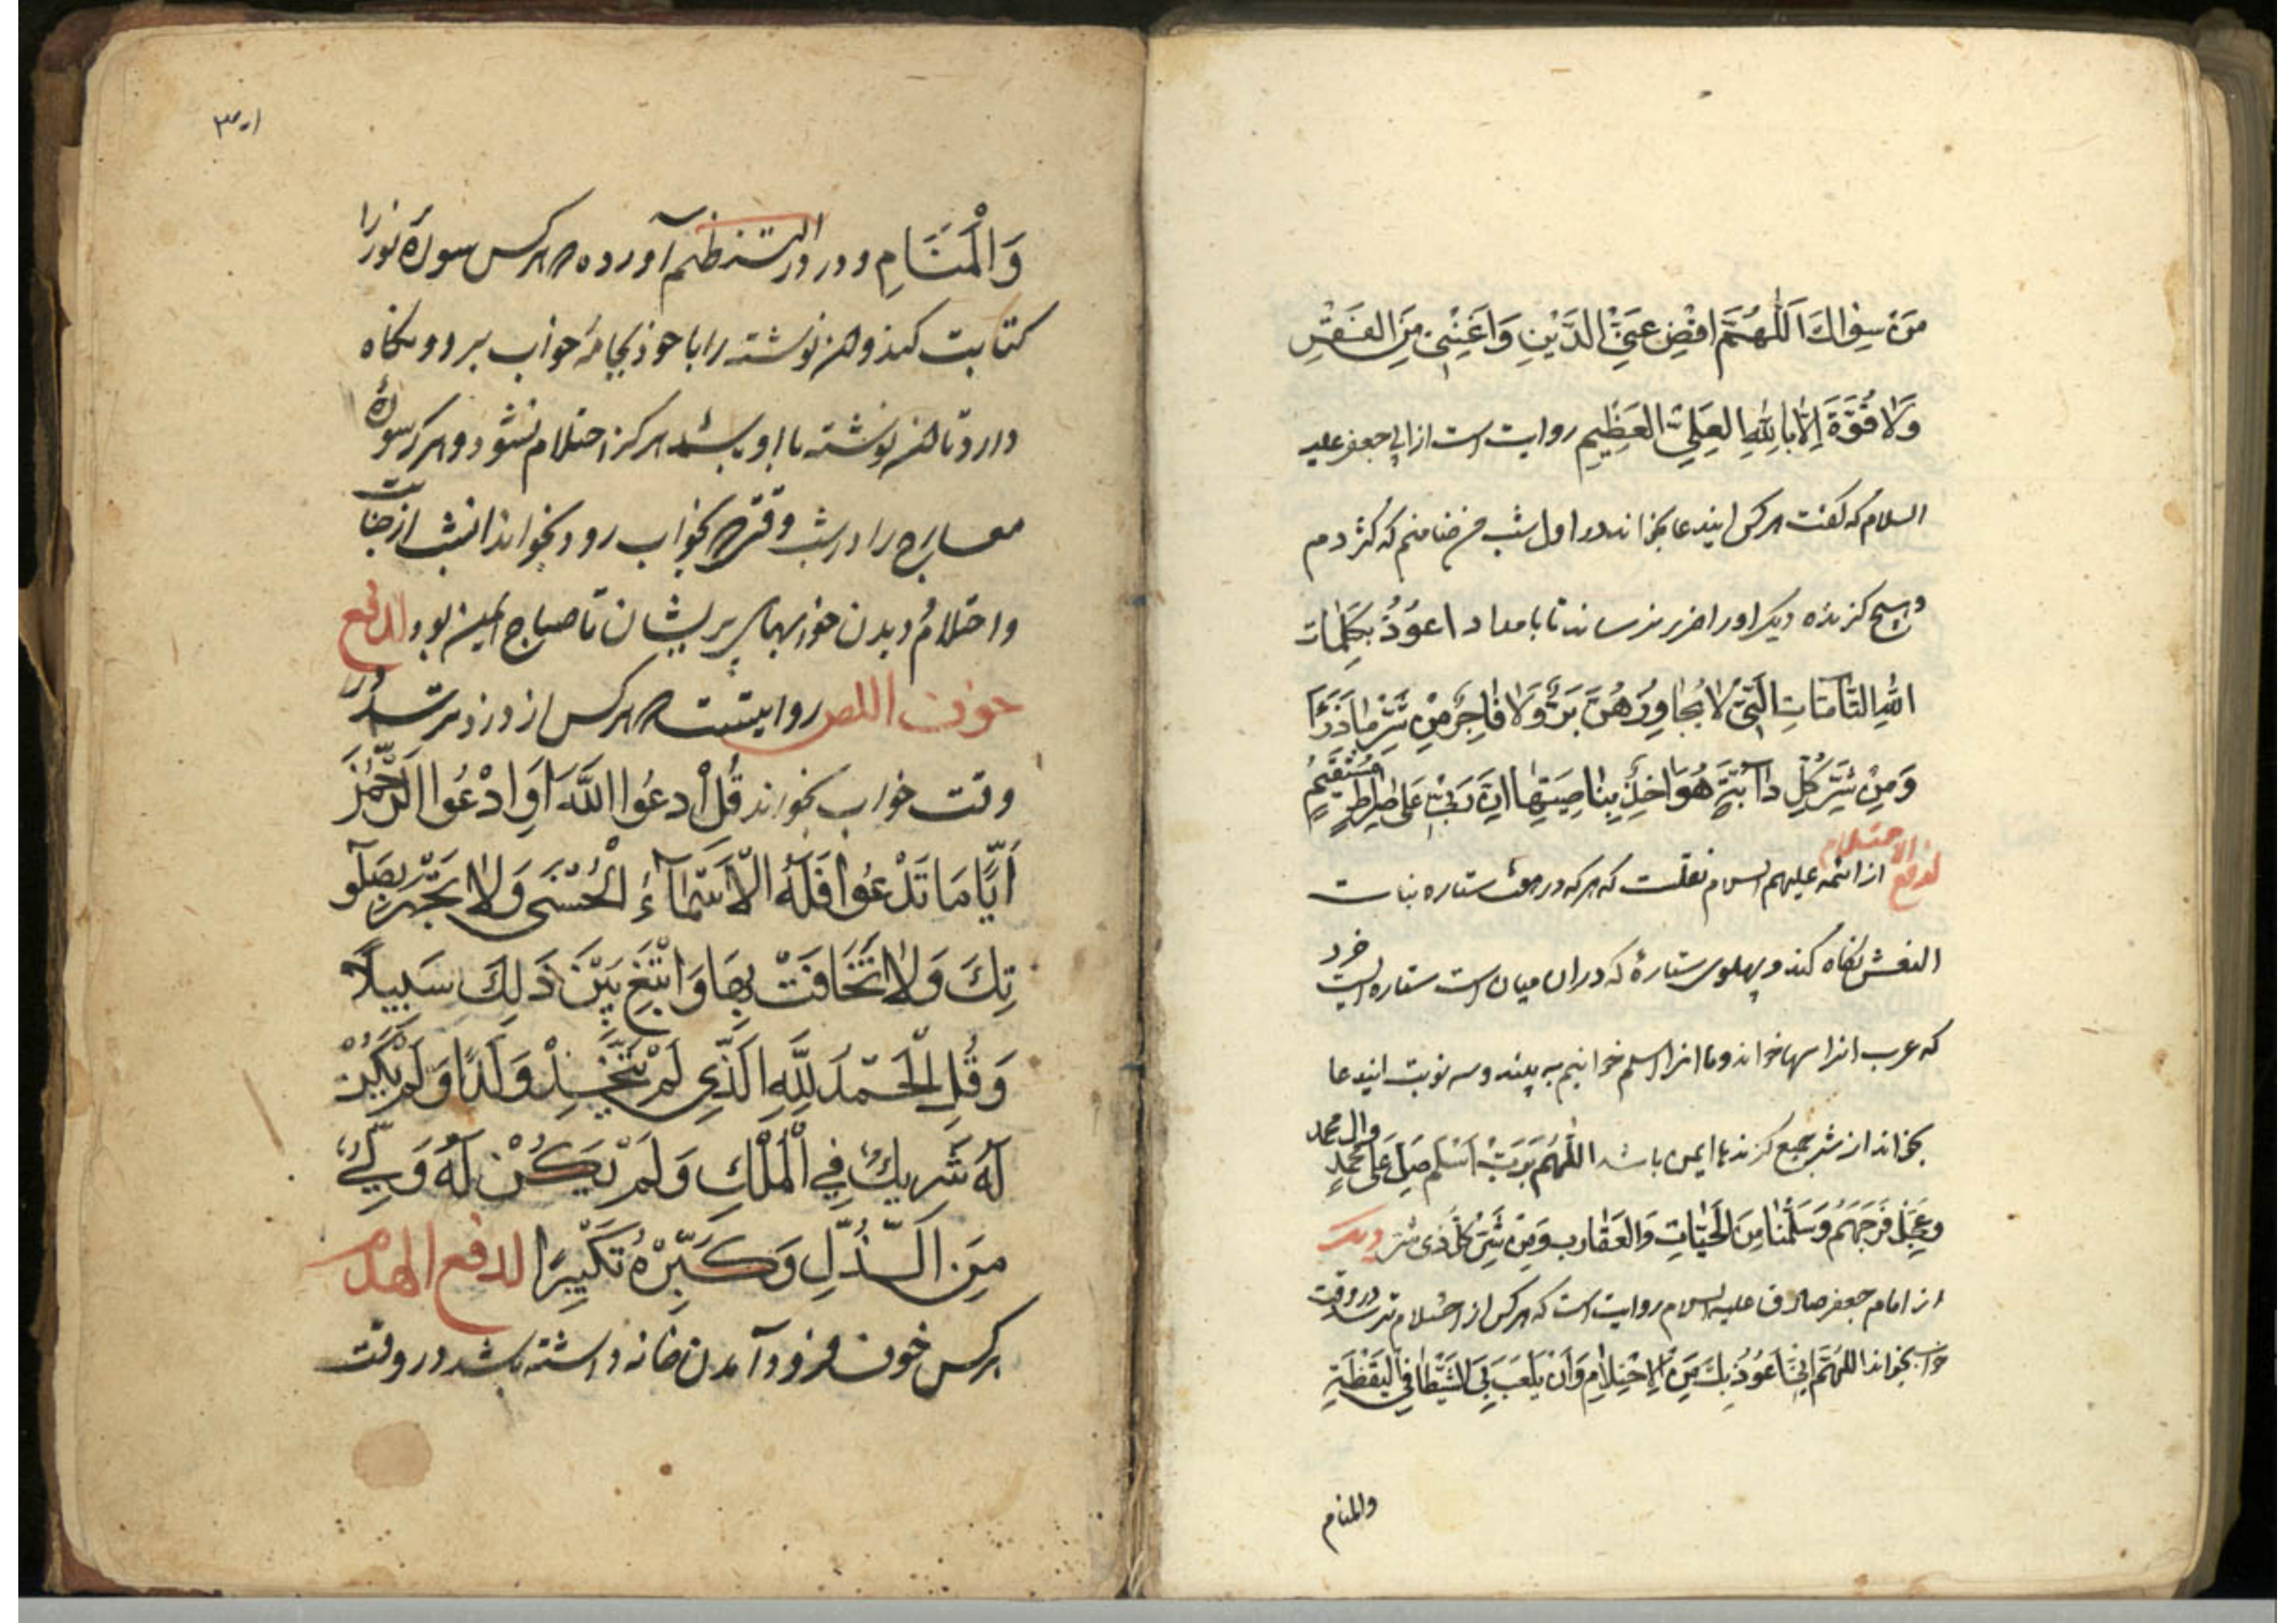 مَنْ سِوٰاكَ اَللّٰهُمَّ اقْضِ عَنِّى الدَّيْنِ وَاَغْنِنْىِ مِنَ الفَقْرِ
وَلاٰ قُوَّةَ اِلاّٰ بِاللّٰهِ العَلِىِّ العَظٖيمِ روايت است از ابى جعفر عليه
السلام كه گفت هر كس ايندعا بخواند در اول شب من ضامنم كه كژدم
و هيچ گزنده ديگر او را ضرر نرساند تا بامداد اعوُذُ بِكَلِمٰاتِ
اللهِ التّٰامّٰاتِ الَّتىٖ لاٰ يُجٰاوِزُهُنَّ بَرٌّ وَلاٰ فٰاجِرٌ مِنْ شَرِّ مٰا ذَرَأَ
وَمِنْ شَرِّ كُلِّ دٰابَّةٍ هُوَ اٰخِذٌ بِنٰاصِيَتِهٰا اِنَّ رَبّىٖ عَلىٰ صِرٰاطٍ مُسْتَقيٖمٍ
لدفع الاحتلام از ائمه عليهم السلام نقلست كه هر كه در هفت ستاره بنات
النعش نگاه كند و پهلوى ستارهٔ كه در ان ميان است ستاره ايست خرد
كه عرب انرا سها خواند و ما انرا اسلم خوانيم به بيند و سه نوبت ايندعا
بخواند از شر جميع گزندها ايمن باشد اللّٰهُمَّ رَبَّ اَسْلَمَ صَلِّ عَلىٰ مُحَمَّدٍ وال محمد
وَعَجِّلْ فَرَجَهُمْ وَسَلِّمْنٰا مِنَ الْحَيّٰاتِ وَالْعَقٰارِبِ وَمِنْ شَرِّ كُلِّ ذى شَرٍّ ديگر
از امام جعفر صادق عليه السلام روايت است كه هر كس از احتلام ترسد در وقت
خواب بخواند اللهُمَّ اِنّىٖ اَعُوذُ بِكَ مِنَ الْاِحْتِلٰامِ وَاَنْ يَلْعَبَ بِىَ الشَّيْطٰا فِى الْيَقْظَةِ
والمنام
وَالْمَنَامِ و در در النظيم آورده كه هر كس سورهٔ نور را
كتابت كند و ان نوشته را با خود بجامهٔ خواب برد و نگاه
دارد تا ان نوشته با او باشد هرگز احتلام نشود و هر كه سورهٔ
معارج را در شب وقتى كه بخواب رود بخواند انشب از جنابت
و احتلام و ديدن خوابهاى پريشان تا صباح ايمن بود لدفع
خوف اللص روايتست كه هر كس از دزد ترسد در
وقت خواب بخواند قُلِ ادعُوا اللَّهَ اَوِ ادْعُوا الرَّحْمٰنَ
اَيًّا مَا تَدْعُوا فَلَهُ الْاَسْمَآءُ الْحُسْنَى وَلاٰ تَجْهَرْ بِصَلَو
تِكَ وَلاٰ تُخَافِتْ بِهَا وَابْتَغِ بَيْنَ ذَلِكَ سَبِيلًا
وَقُلِ الْحَمْدُ لِلَّهِ الَّذِى لَمْ يَتَّخِذْ وَلَدًا وَلَمْ يَكُنْ
لَهُ شَرِيكٌ فِى الْمُلْكِ وَلَمْ يَكُنْ لَهُ وَلِىٌّ
مِنَ الذُّلِ وَكَبِّرْهُ تَكْبِيرًا لدفع الهدم
هر كس خوف فرود آمدن خانه داشته باشد در وقت